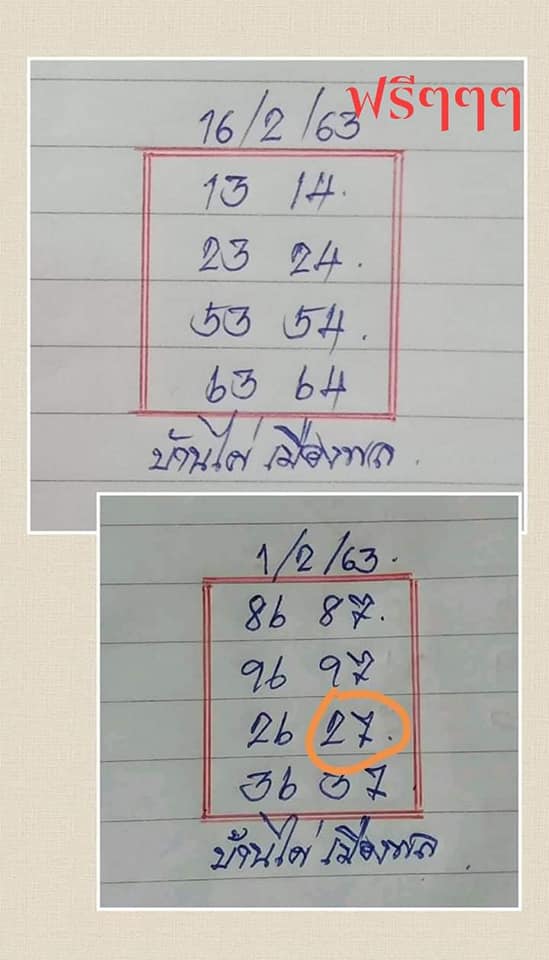 ฟรีๆๆๆ
16/2/63
13 14.
23 24.
53 54.
63 64
บ้านไผ่ เมืองพล.
1/2/63.
86 87.
96 97
26 27.
36 37
บ้านไผ่ เมืองพล